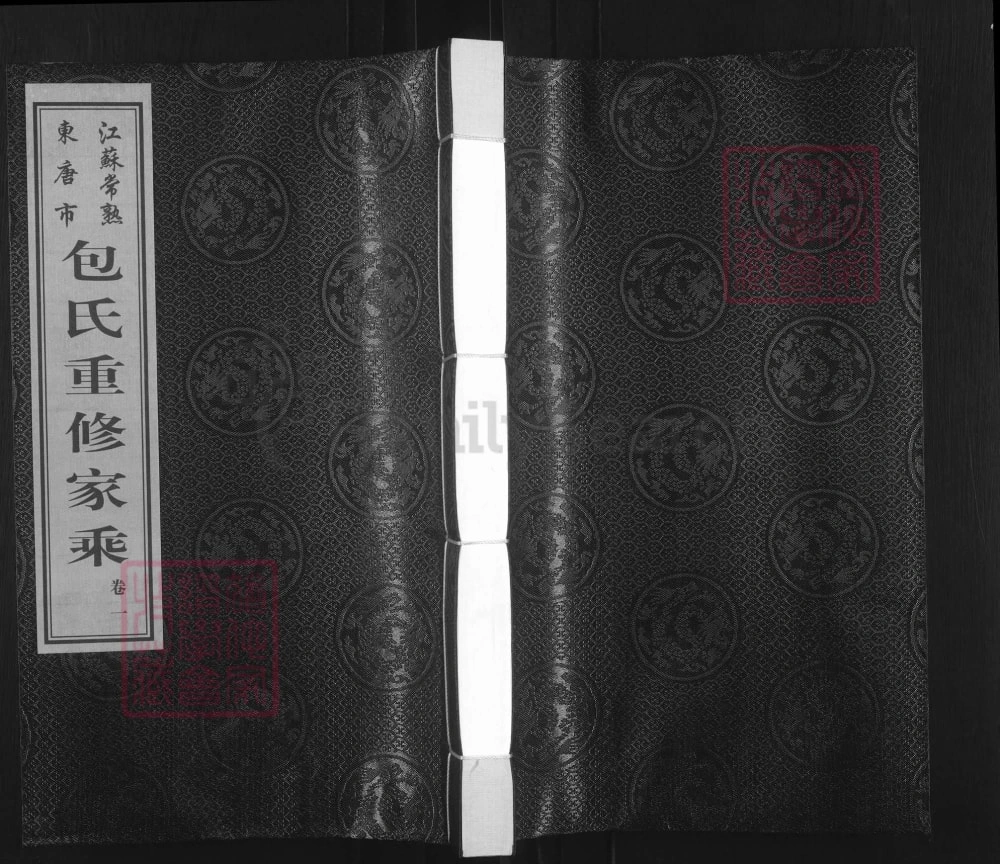 江蘇常熟
東唐市
包氏重修家乘
卷一